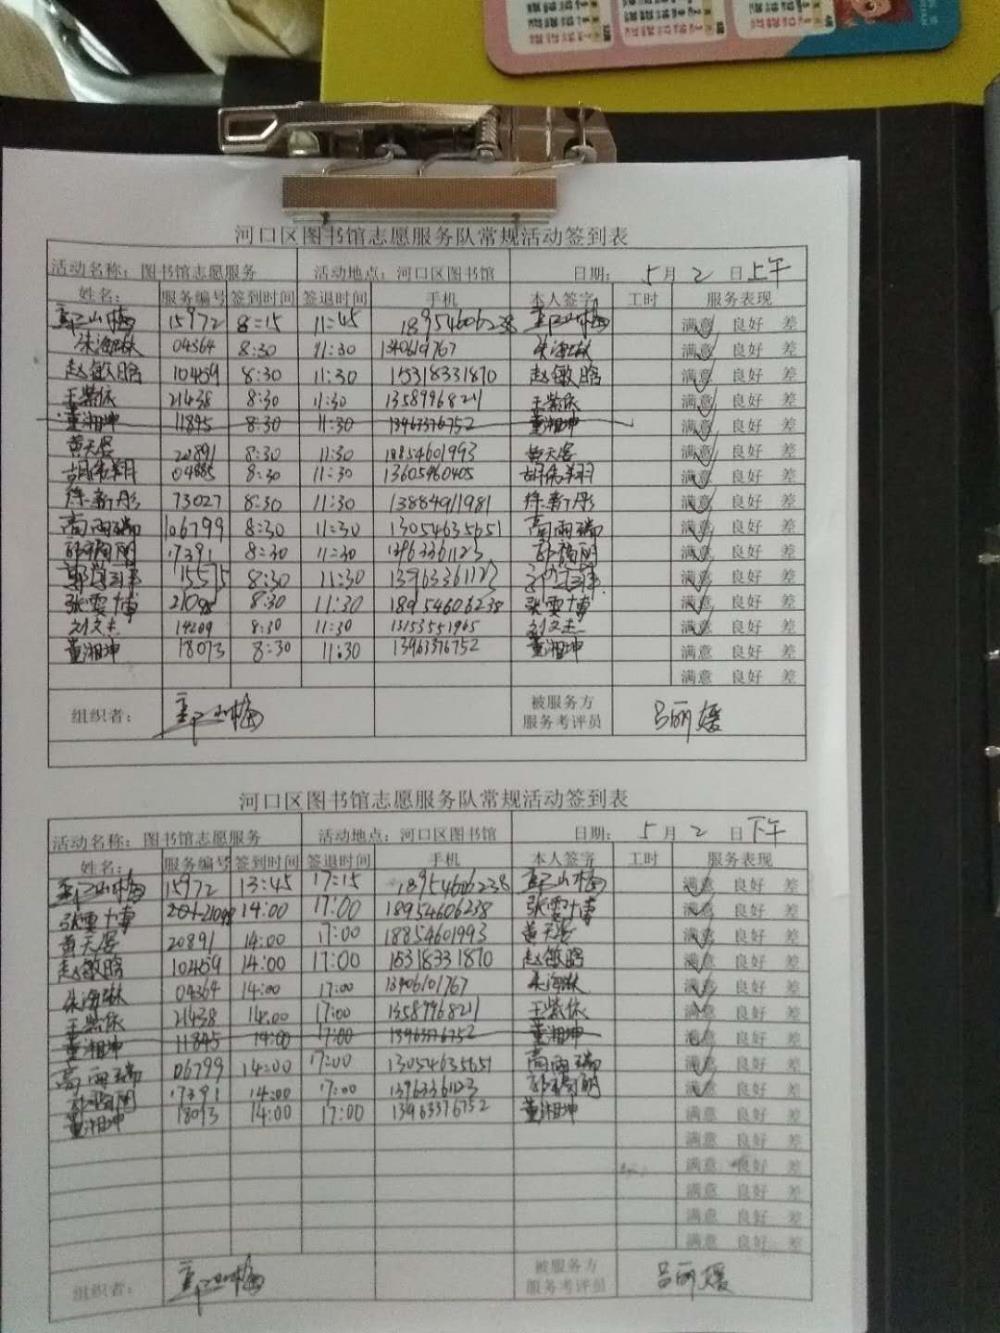 河口区图书馆志愿服务队常规活动签到表
活动名称：图书馆志愿服务 活动地点：河口区图书馆 日期：5月2日上午
姓名： 服务编号 签到时间 签退时间 手机 本人签字 工时 服务表现
15972 8:15 11:45 18954606238 满意 良好 差
朱海琳 04364 8:30 11:30 朱海琳 满意 良好 差
赵敏晗 10459 8:30 11:30 15318331870 赵敏晗 满意 良好 差
王紫依 21438 8:30 11:30 13589968211 王紫依 满意 良好 差
董湘坤 11845 8:30 11:30 13963376752 董湘坤 满意 良好 差
黄天晏 20891 8:30 11:30 18854601993 黄天晏 满意 良好 差
04885 8:30 11:30 13605460405 满意 良好 差
徐新彤 73027 8:30 11:30 13884911981 徐新彤 满意 良好 差
高雨瑞 106799 8:30 11:30 13054635651 高雨瑞 满意 良好 差
17391 8:30 11:30 满意 良好 差
15575 8:30 11:30 满意 良好 差
张云博 21098 8:30 11:30 18954606238 张云博 满意 良好 差
刘文杰 14209 8:30 11:30 13153551965 刘文杰 满意 良好 差
董湘坤 18073 8:30 11:30 13963376752 董湘坤 满意 良好 差
满意 良好 差
组织者： 被服务方
服务考评员 吕丽媛
河口区图书馆志愿服务队常规活动签到表
活动名称：图书馆志愿服务 活动地点：河口区图书馆 日期：5月2日下午
姓名： 服务编号 签到时间 签退时间 手机 本人签字 工时 服务表现
15972 13:45 17:15 18954606238 满意 良好 差
张云博 21098 14:00 17:00 18954606238 张云博 满意 良好 差
黄天晏 20891 14:00 17:00 18854601993 黄天晏 满意 良好 差
赵敏晗 10459 14:00 17:00 15318331870 赵敏晗 满意 良好 差
朱海琳 04364 14:00 17:00 13406101767 朱海琳 满意 良好 差
王紫依 21438 14:00 17:00 13589968211 王紫依 满意 良好 差
董湘坤 11845 14:00 17:00 13963376752 董湘坤 满意 良好 差
高雨瑞 06799 14:00 17:00 13054635651 高雨瑞 满意 良好 差
17391 14:00 17:00 满意 良好 差
董湘坤 18073 14:00 17:00 13963376752 董湘坤 满意 良好 差
满意 良好 差
满意 良好 差
满意 良好 差
满意 良好 差
满意 良好 差
组织者： 被服务方
服务考评员 吕丽媛